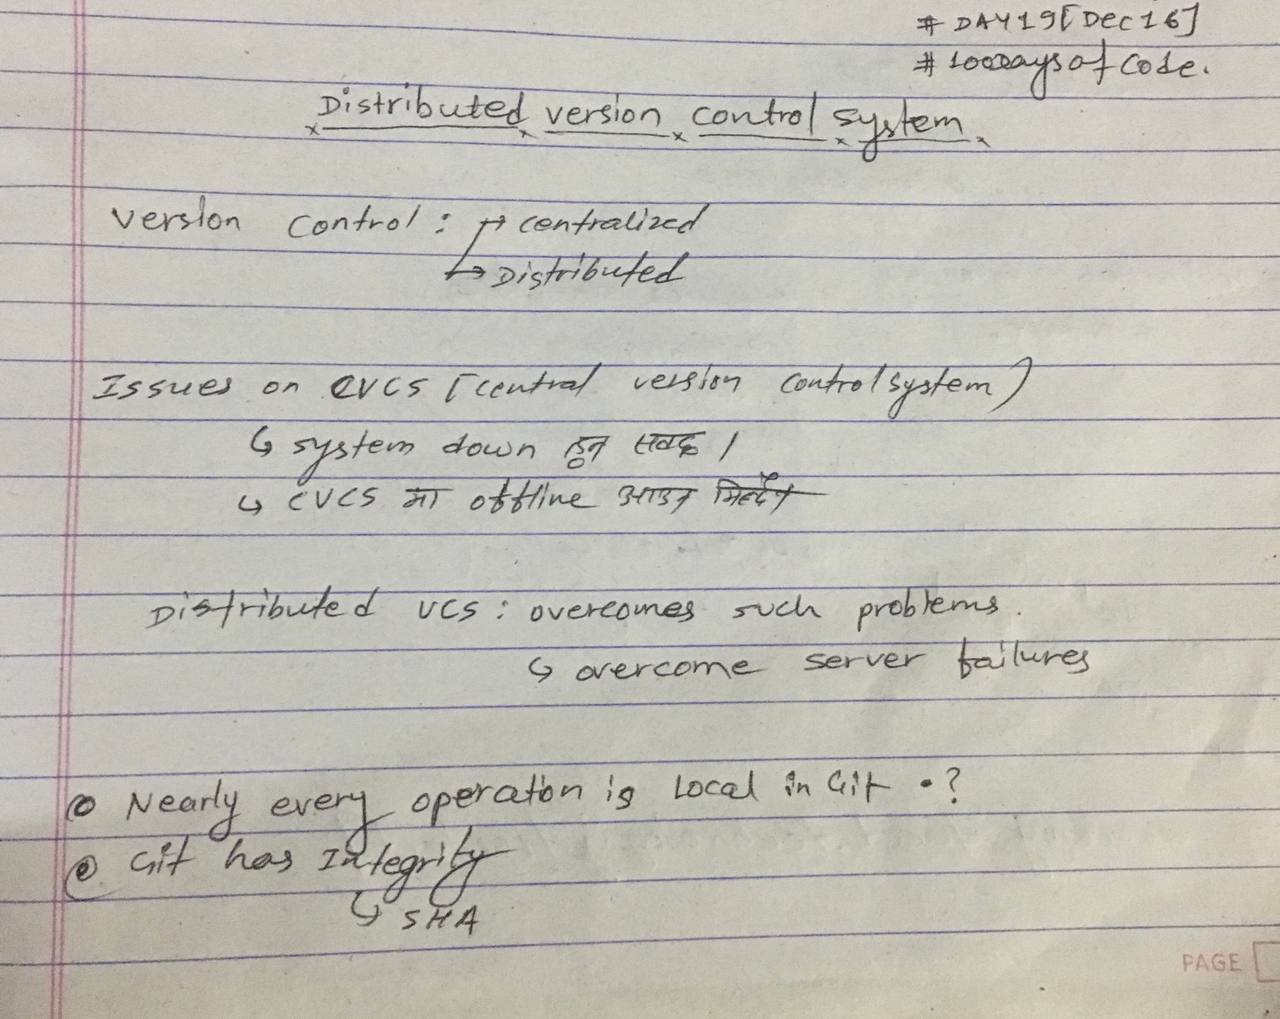 # DAY19[Dec16]
# 100Daysof Code.
Distributed version control system
Version Control: → centralized
↳ Distributed
Issues on CVCS [central version control system)
↳ system down हुन सक्छ।
↳ CVCS मा offline आउन मिल्दैन
Distributed VCS: overcomes such problems.
↳ overcome server failures
Nearly every operation is Local in Git.?
Git has Integrity
↳ SHA
PAGE